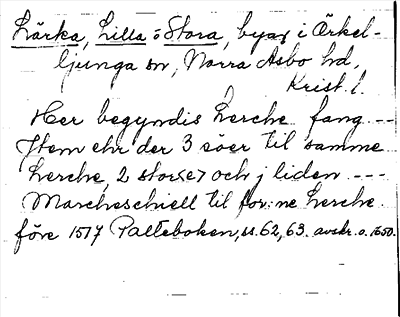 Lärka, Lilla o Stora, byar i Örkel-
ljunga sn, Norra Åsbo hd,
Krist. l.
Her begyndis Lerche fang ---
Item ehr der 3 söer til samme
Lerche, 2 storre och j liden ---
Marcheschiell til for:ne Lerche.
före 1517 Palteboken, ss. 62, 63. avskr. o. 1650.